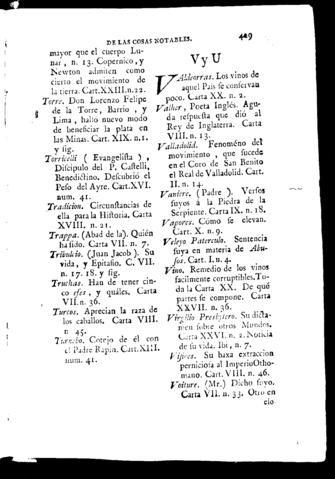 DE LAS COSAS NOTABLES. 429
mayor que el cuerpo Lu-
nar, n. 13. Copernico, y
Newton admiten como
cierto el movimiento de
la tierra. Cart. XXIII. n. 22.
Torre. Don Lorenzo Felipe
de la Torre, Barrio, y
Lima, halló nuevo modo
de beneficiar la plata en
las Minas. Cart. XIX. n. 1.
y sig.
Torricelli (Evangelista),
Discipulo del P. Castelli,
Benedictino. Descubrió el
Peso del Ayre. Cart. XVI.
num. 41.
Tradicion. Circunstancias de
ella para la Historia. Carta
XVIII. n. 21.
Trappa. (Abad de la). Quién
ha sido. Carta VII. n. 7.
Triúlcio. (Juan Jacob). Su
vida, y Epitafio. C. VII.
n. 17. 18. y sig.
Truchas. Han de tener cin-
co eses, y quáles. Carta
VII. n. 36.
Turcos. Aprecian la raza de
los caballos. Carta VIII.
n. 45.
Cotejo de él con
el Padre Rapin. Cart. XIII.
num. 41.
V y U
Valdeorras. Los vinos de
aquel Pais se conservan
poco. Carta XX. n. 2.
Valher, Poeta Inglés. Agu-
da respuesta que dió al
Rey de Inglaterra. Carta
VIII. n. 13.
Valladolid. Fenoméno del
movimiento, que sucede
en el Coro de San Benito
el Real de Valladolid. Cart.
II. n. 14.
Vaniere. (Padre). Versos
suyos á la Piedra de la
Serpiente. Carta IX. n. 18.
Vapores. Cómo se elevan.
Cart. X. n. 9.
Veleyo Paterculo. Sentencia
suya en materia de Abu-
sos. Cart. I. n. 4.
Vino. Remedio de los vinos
facilmente corruptibles. To-
da la Carta XX. De qué
partes se compone. Carta
XXVII. n. 36.
Virgilio Presbytero. Su dicta-
men sobre otros Mundos.
Carta XXVI. n. 2. Noticia
de su vida. Ibi, n. 7.
Visires. Su baxa extraccion
perniciosa al Imperio Otho-
mano. Cart. VIII. n. 46.
Voiture. (Mr.) Dicho suyo.
Carta VII. n. 33. Otro en
elo